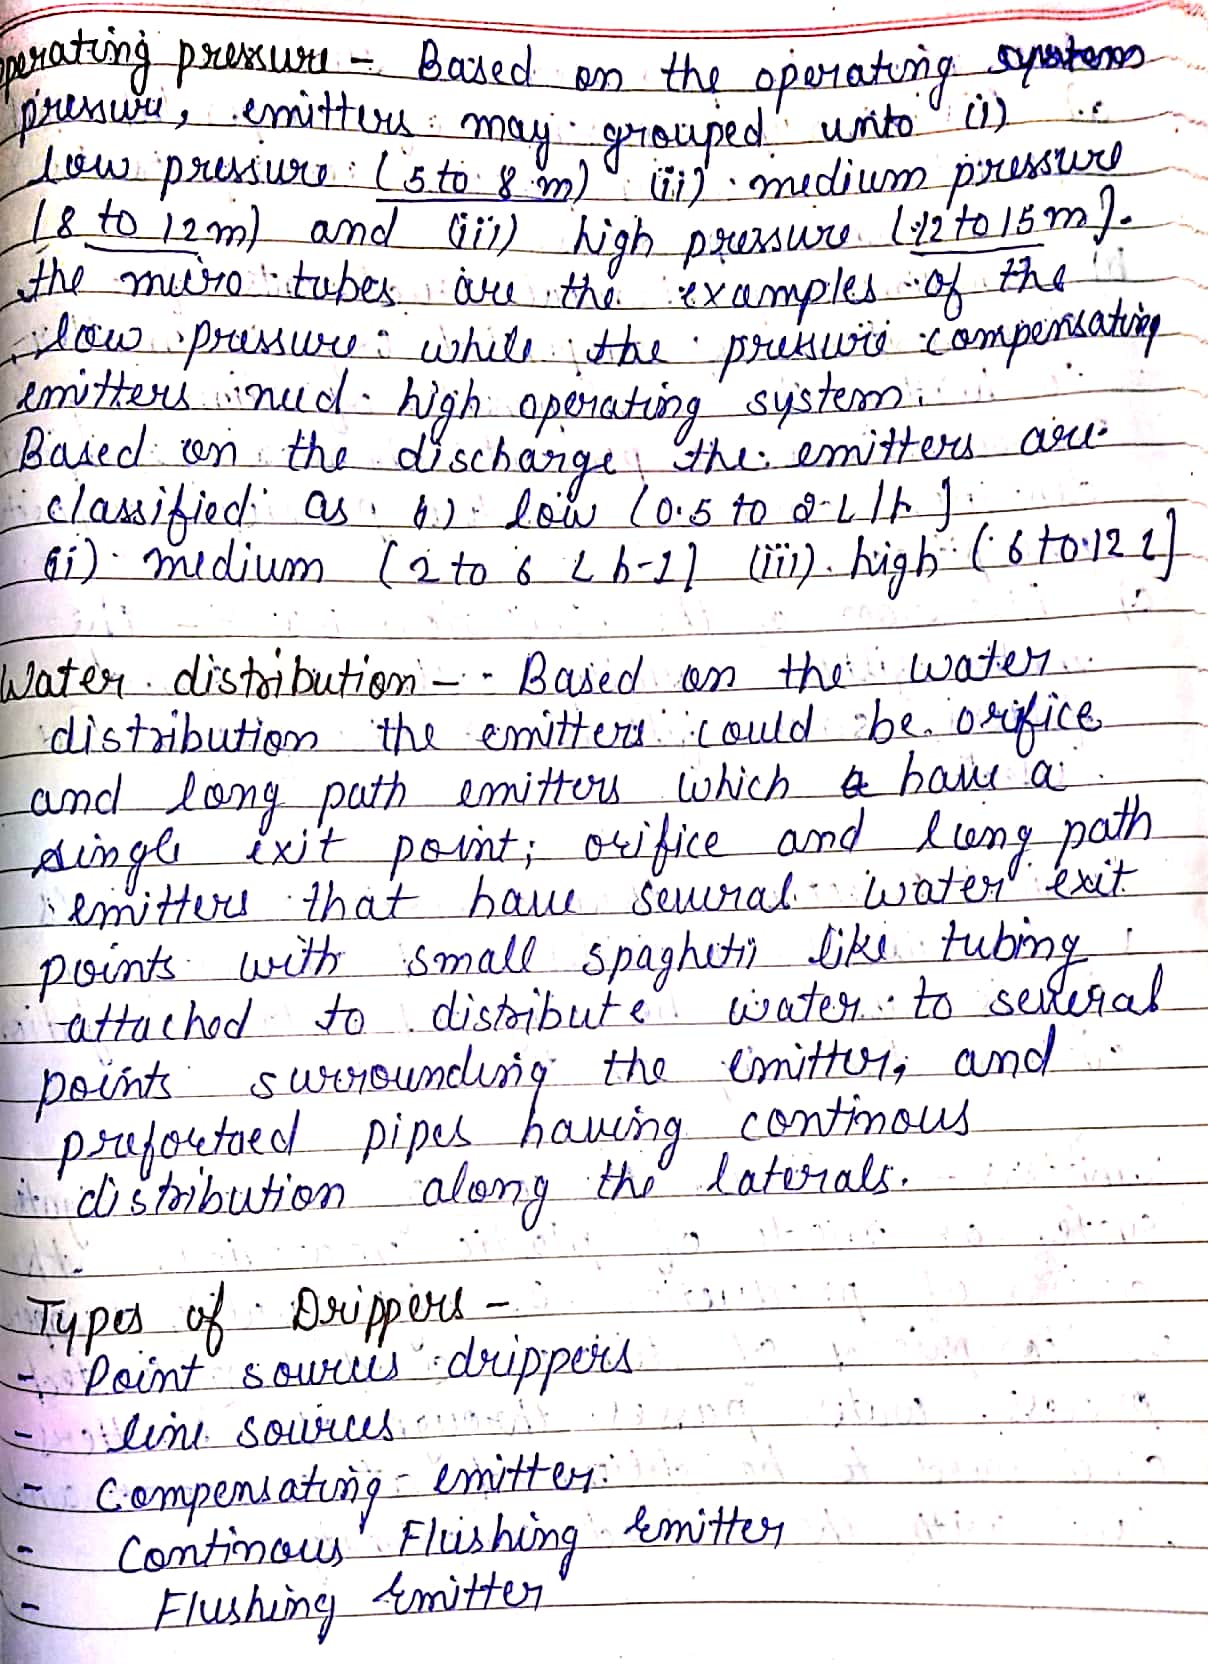 operating pressure - Based on the operating systems
pressure, emitters may grouped unto (i)
low pressure (5 to 8 m) (ii) medium pressure
(8 to 12 m) and (iii) high pressure (12 to 15 m).
the micro tubes are the examples of the
low pressure while the pressure compensating
emitters need high operating system.
Based on the discharge the emitters are
classified as i) low (0.5 to 2 L/h)
(ii) medium (2 to 6 L h-1] (iii) high (6 to 12 l]
Water distribution - Based on the water
distribution the emitters could be orifice
and long path emitters which have a
single exit point; orifice and long path
emitters that have several water exit
points with small spaghetti like tubing
attached to distribute water to several
points surrounding the emitter; and
pipes having continous
distribution along the laterals.
Types of Drippers -
- Point sources drippers
- line sources
- Compensating - emitter
- Continous Flushing Emitter
- Flushing Emitter